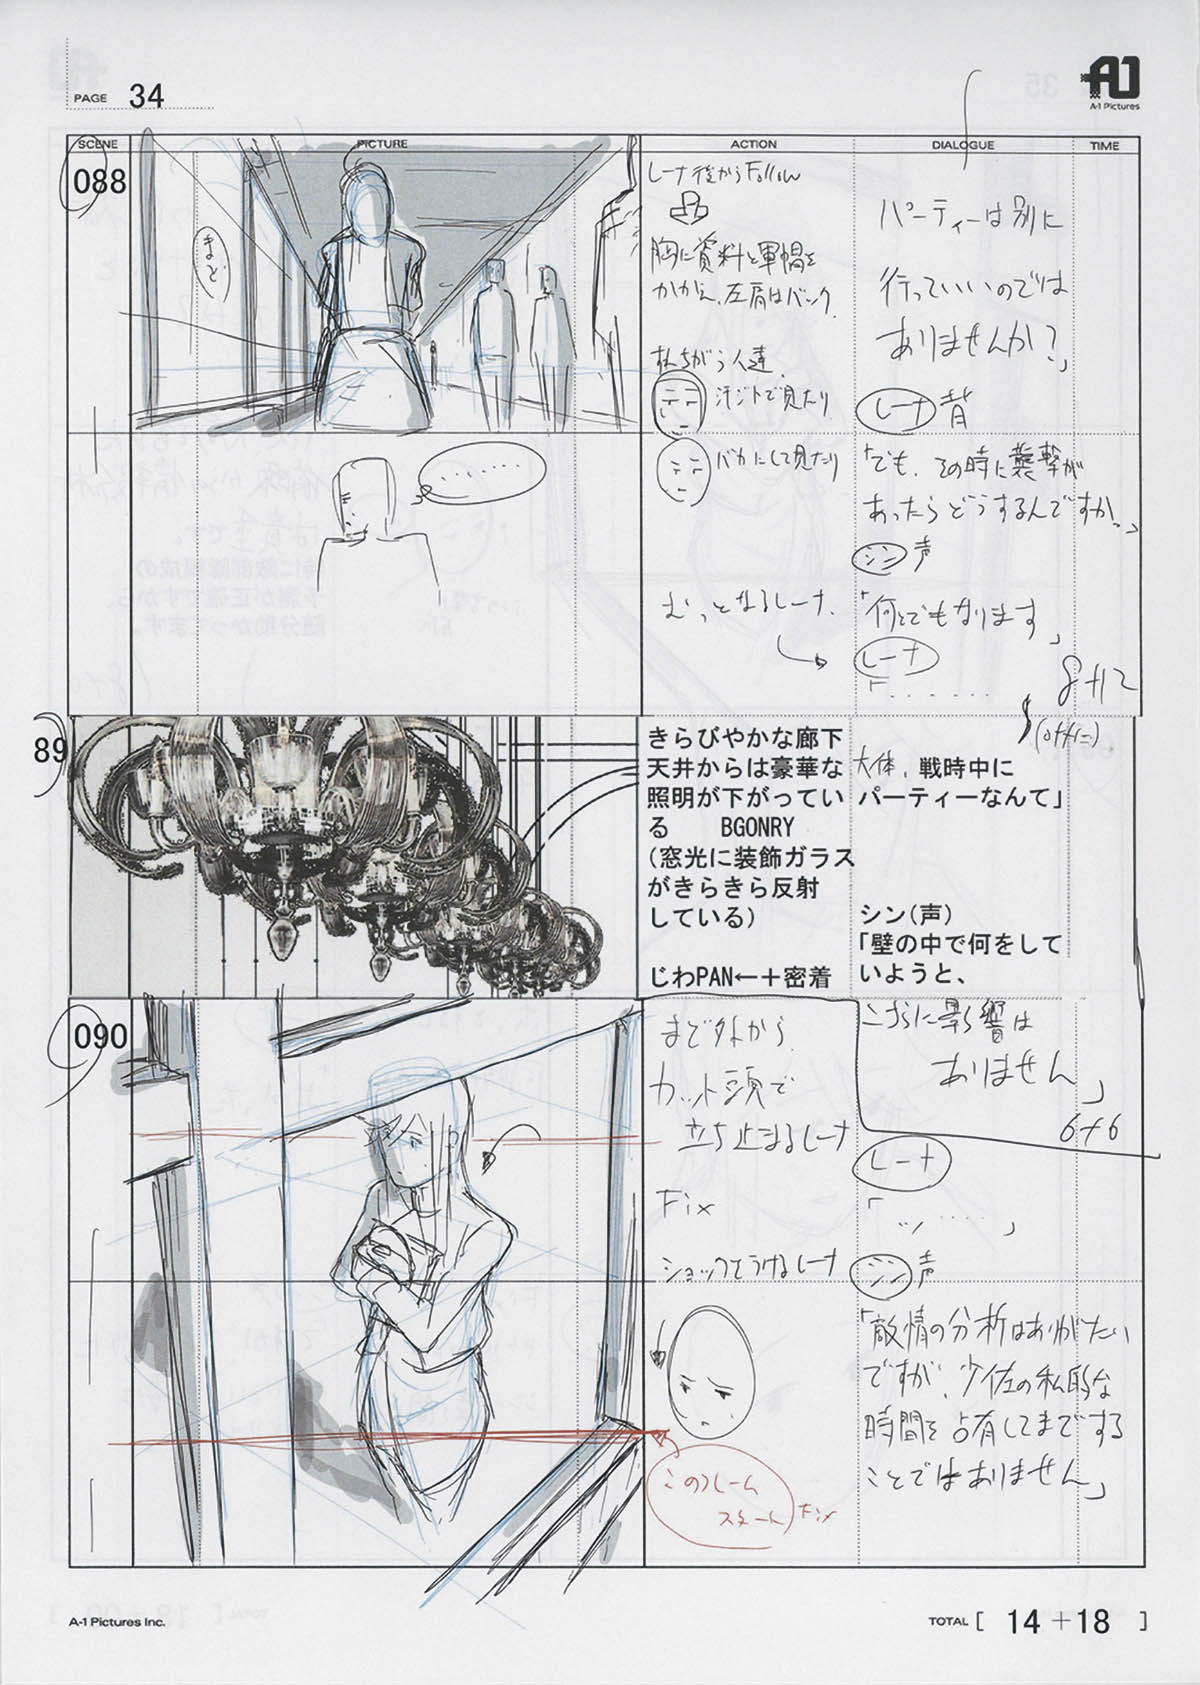 PAGE 34
A-1 Pictures
SCENE PICTURE ACTION DIALOGUE TIME
088
まど
レーナ後からFollow
胸に資料と軍帽を
かかえ、左肩はバック
すれちがう人達、
汗ジトで見たり
バカにして見たり
むっとなるレーナ、
パーティーは別に
行っていいのでは
ありませんか?」
レーナ 背
「でも、その時に襲撃が
あったらどうするんですか。」
シン 声
「何とでもなります」
レーナ
「.......
8+12
(offに)
89
きらびやかな廊下
天井からは豪華な
照明が下がってい
る BGONRY
(窓光に装飾ガラス
がきらきら反射
している)
じわPAN←+密着
大体、戦時中に
パーティーなんて」
シン(声)
「壁の中で何をして
いようと、
090
まど外から、
カット頭で
立ち止まるレーナ
Fix
ショックをうけるレーナ
このフレーム
スタート Fix
こちらに影響は
ありません」
6+6
レーナ
「ッ……」
シン 声
「敵情の分析はありがたい
ですが、少佐の私的な
時間を占有してまでする
ことではありません」
A-1 Pictures Inc.
TOTAL [ 14+18 ]